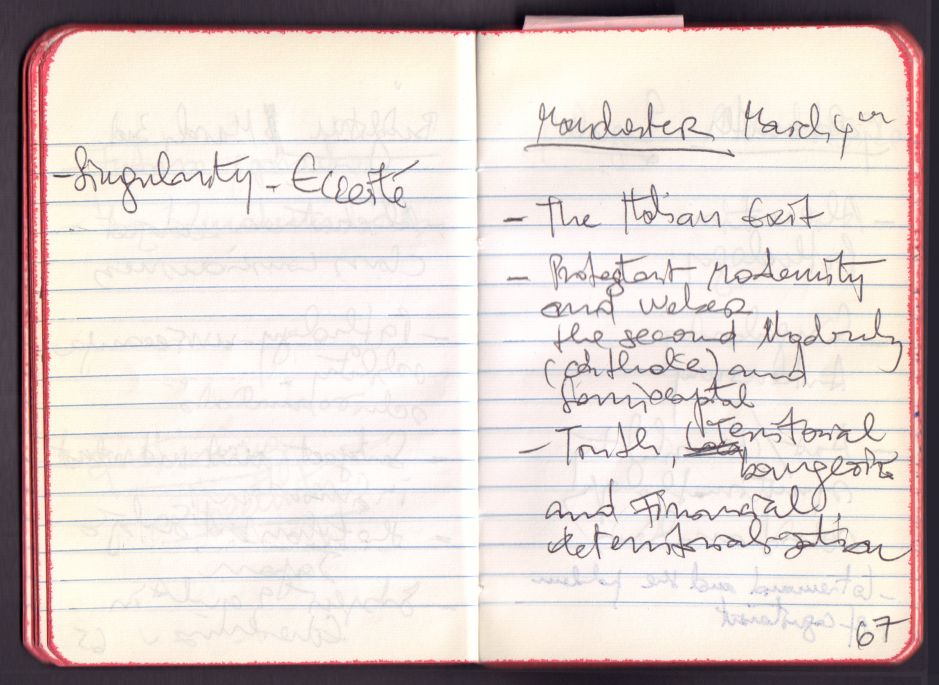 - Singularity - Ecceité
Manchester March 4th
- The Italian Exit
- Protestant Modernity
and Weber
the second Modernity
(catholic) and
Semiocapital
- Truth, Territorial
bourgeoisie
and Financial
deterritorialization
67